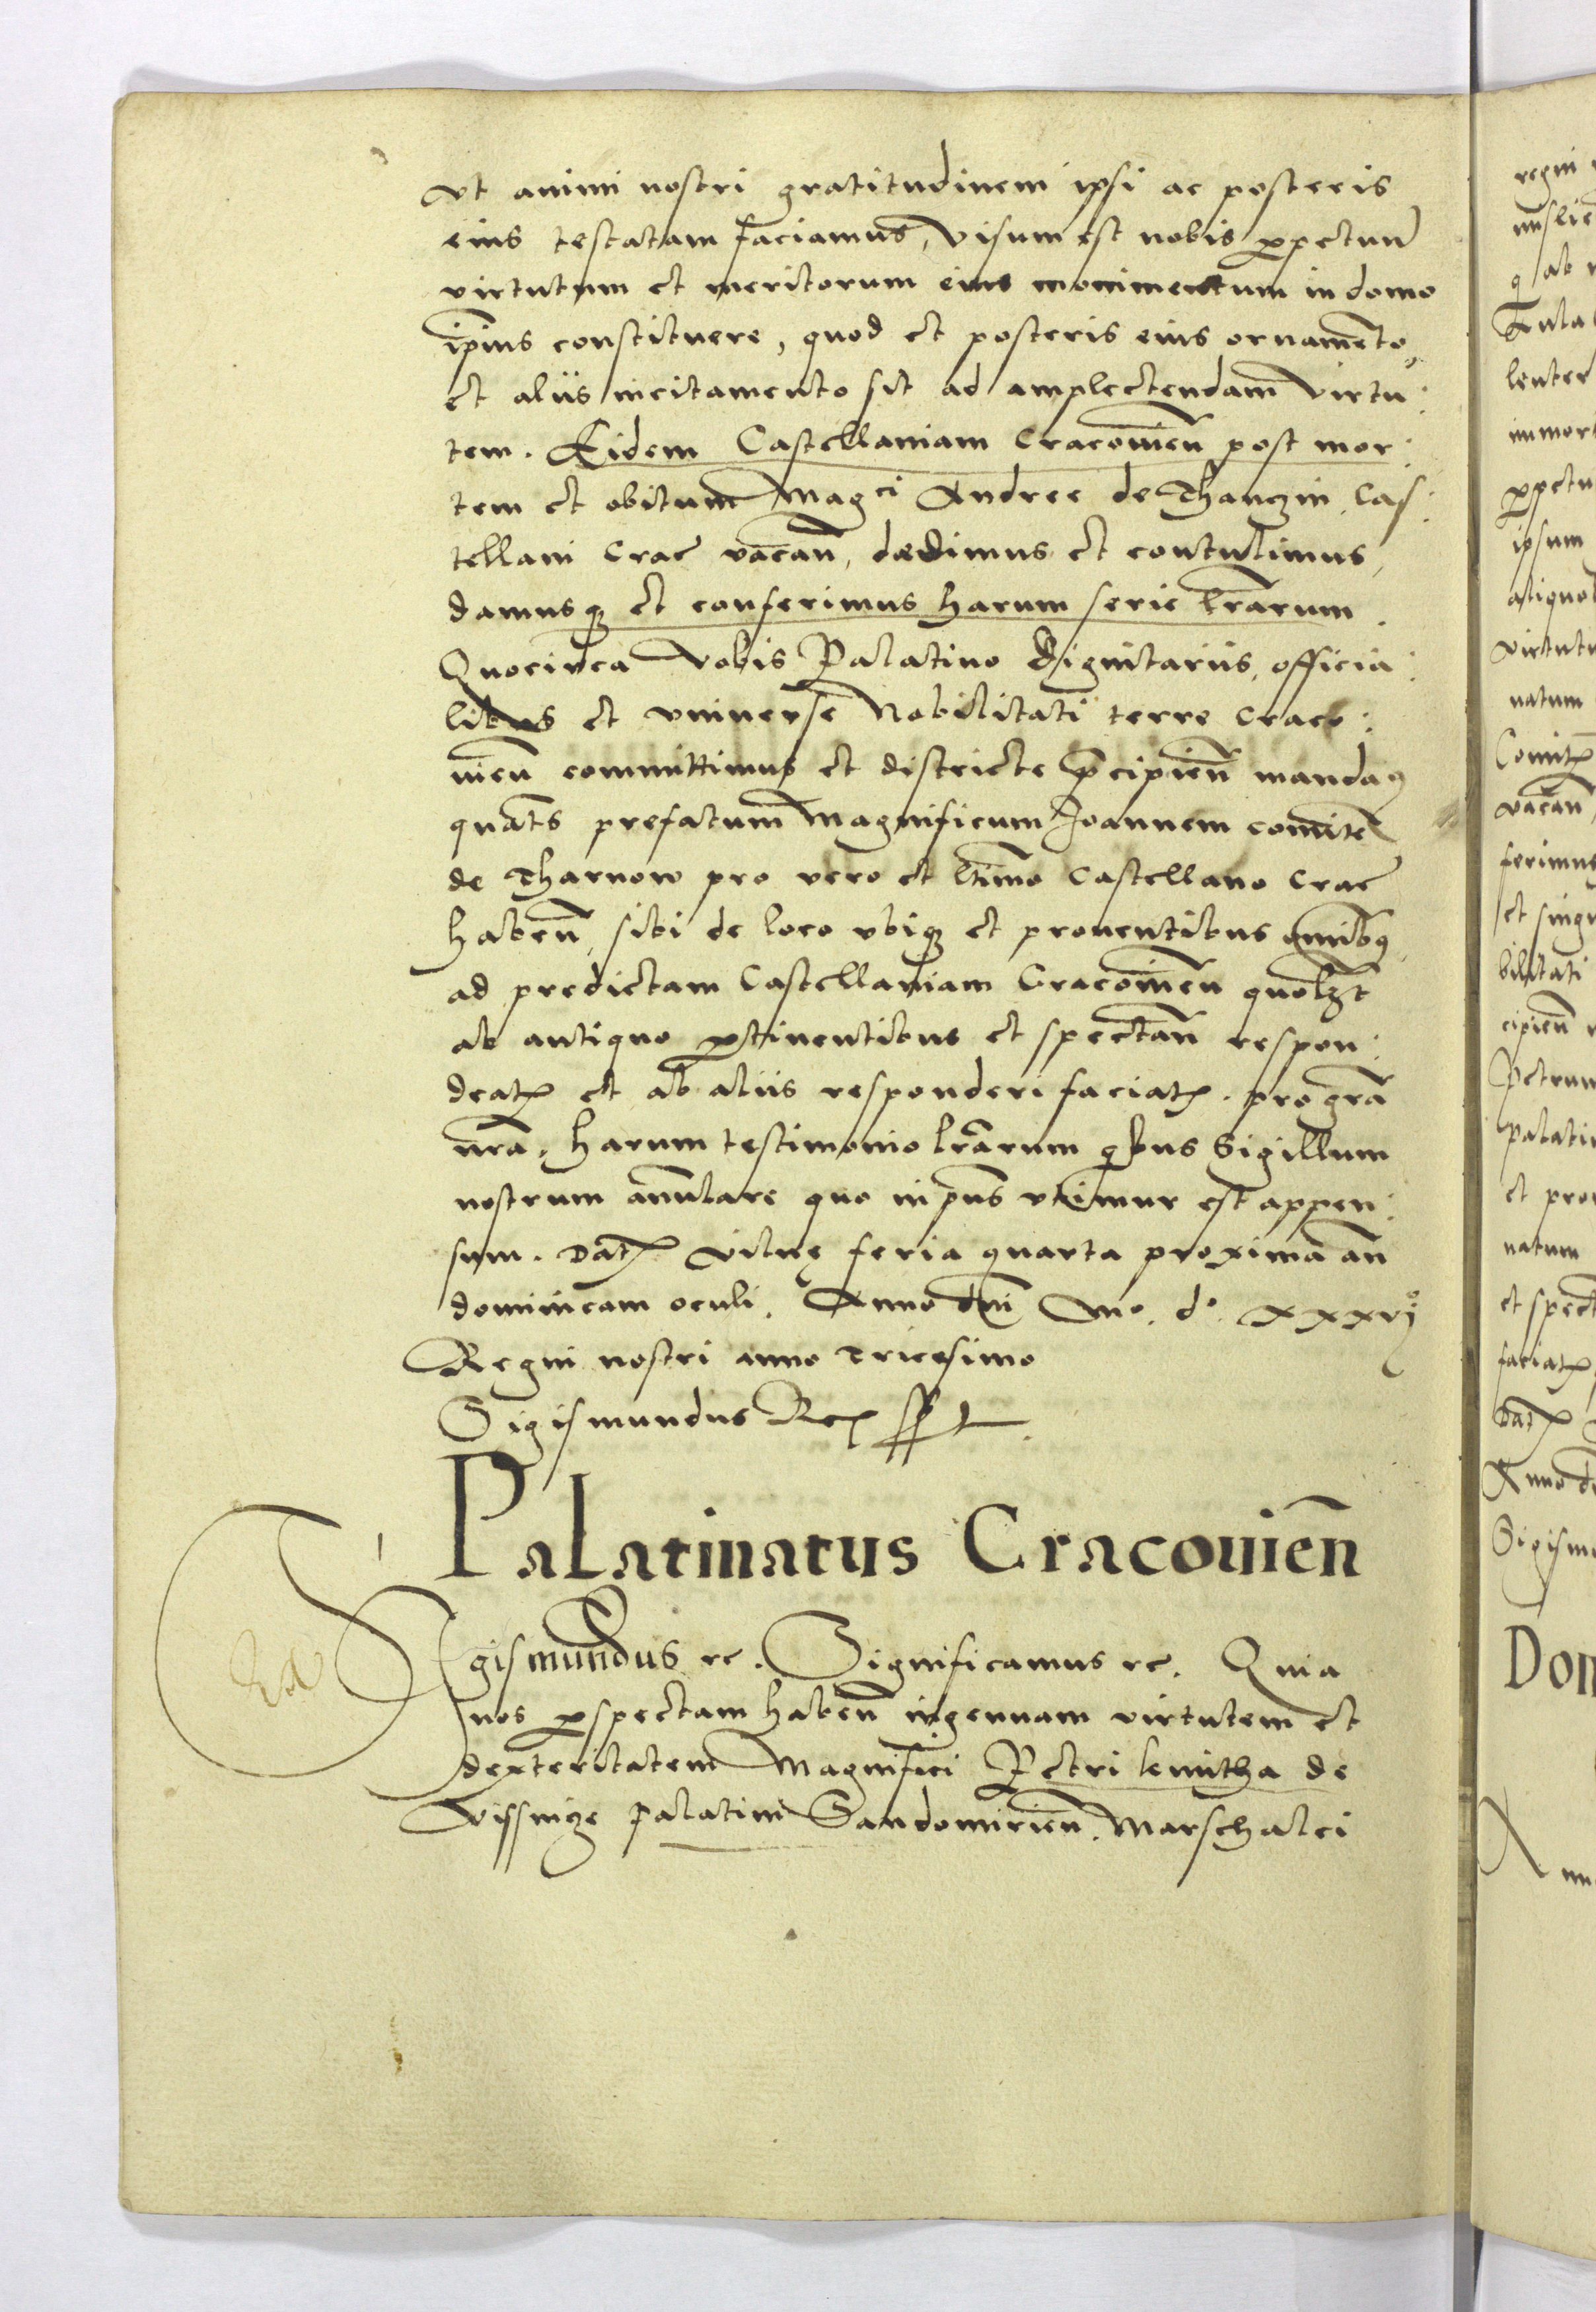 vt animi nostri gratitudinem ipsi ac posteris
eius testatam faciamus, visum est nobis ꝑpetuũ
virtutum et meritorum eius monimentum in domo
ip̃ius constituere, quod et posteris eius ornamẽto,
et aliis incitamento sit ad amplectendam virtu:
tem. Eidem Castellaniam Cracouieñ post mor:
tem et obitum Magci Andree de Thanczin, Cas:
tellani Crac̃ vacañ, dedimus et contulimus,
damusqꝫ et conferimus harum serie lr̃arum.
Quocirca vobis Palatino Dignitariis, officia:
libus et vniuerse Nobilitati terre Craco:
uieñ committimus et districte p̃cipieñ mandaꝰ
quat̃s prefatum Magnificum Joannem comitẽ
de Tharnow pro vero et ltĩmo Castellano Crac̃
habeñ, sibi de loco vbiqꝫ et prouentibus omnibꝰ
ad predictam Castellaniam Cracouieñ quolꝫt
ab antiquo ꝑtinentibus et spectañ respon:
deatꝭ et ab aliis responderi faciatꝭ. pro grã
nrã. Harum testimonio lrãrum qͥbus Sigillum
nostrum añulare quo in p̃ns vtimur est appen:
sum. Datꝭ Vilnę feria quarta proxima añ
dominicam oculi. Anno dñi Mº. dº. xxxvjº
Regni nostri anno Tricesimo
Sigismundus Rex sst
Palatinatus Cracouieñ
Sigismundus ꝛc. Significamus ꝛc. Quia
nos ꝑspectam habeñ ingenuam virtutem et
dexteritatem Magnifici Petri kmitha de
Vissnicze palatini Sandomirieñ. Marschalci